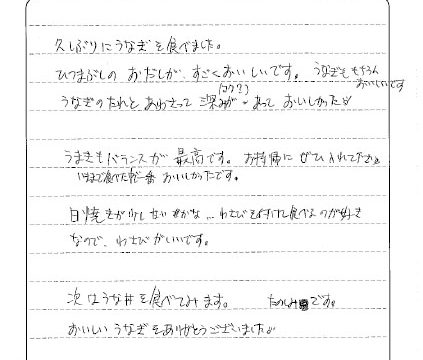 久しぶりにうなぎを食べました。
ひつまぶしの おだしが、すごくおいしいです。 うなぎももちろん
おいしいです
(コク?)
うなぎのたれと あわさって 深みが あって おいしかった
うまきもバランスが 最高です。お持帰に ぜひ入れてださい
いままで食べた中で一番 おいしかったです。
白焼きが少ない かな… わさびを付けて食べるのが好き
なので、わさびがいいです。
次はうな丼を食べてみます。 たのしみです。
おいしい うなぎをありがとうございました